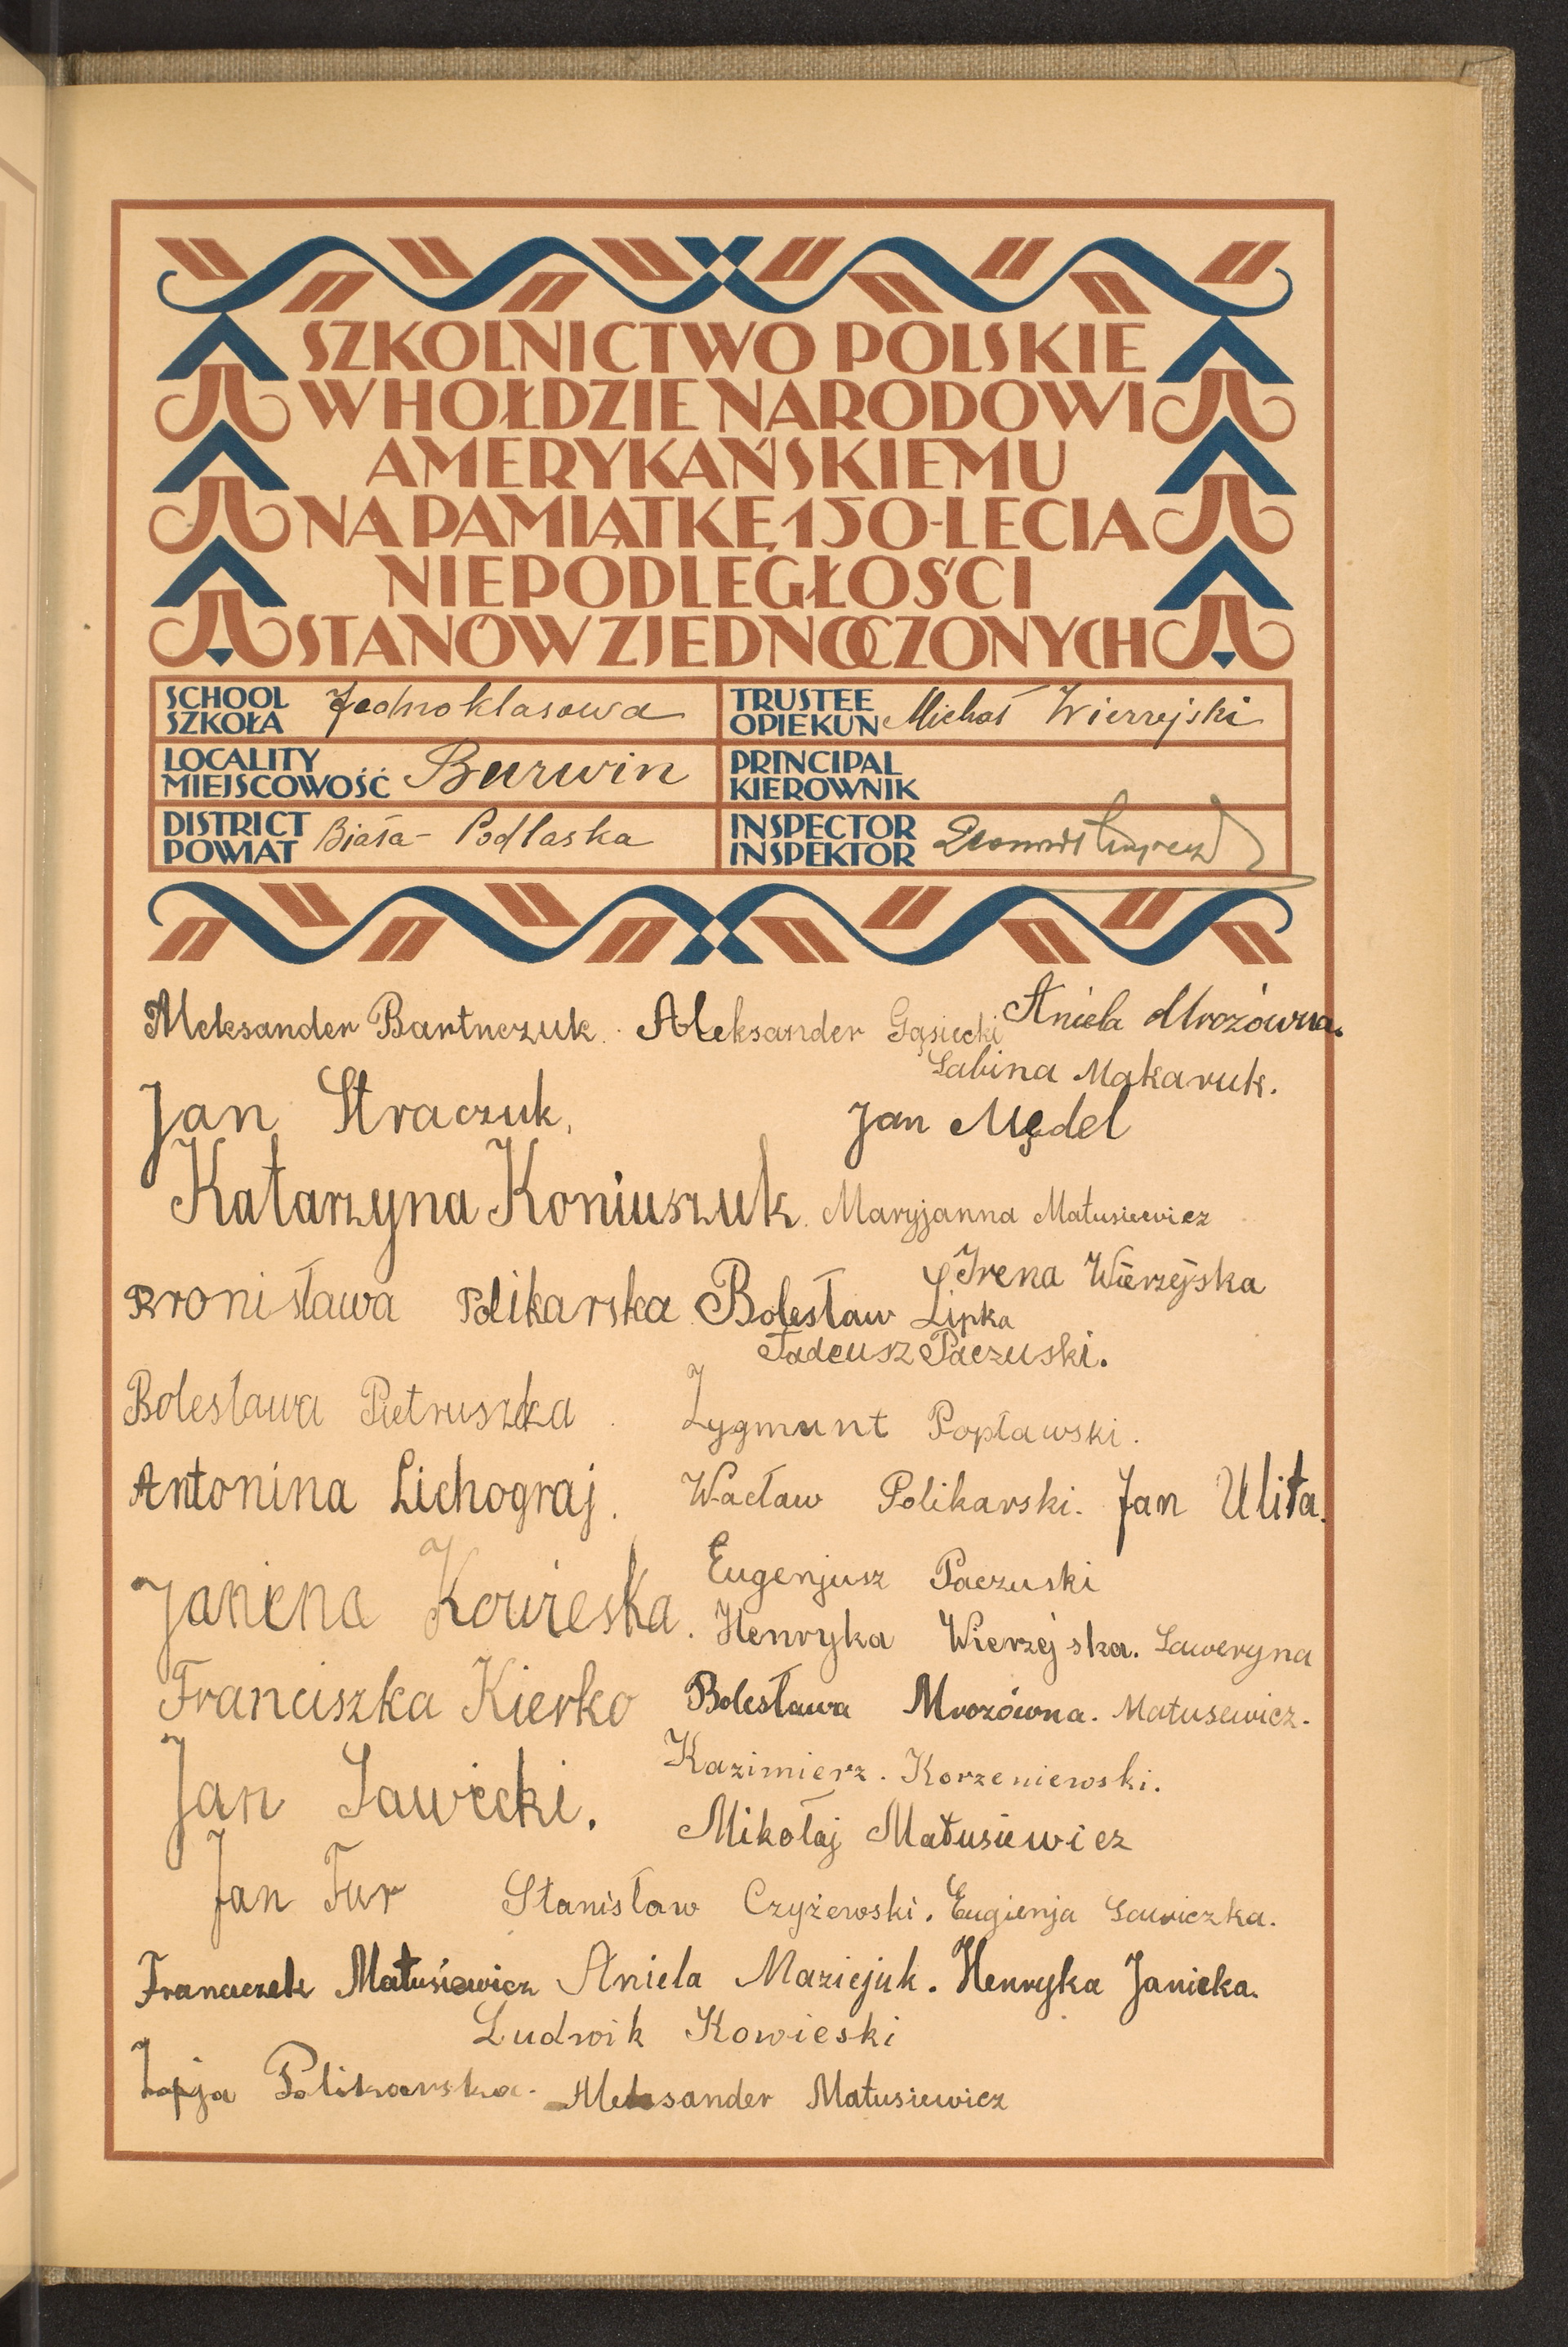 SZKOLNICTWO POLSKIE
W HOŁDZIE NARODOWI
AMERYKAŃSKIEMU
NA PAMIĄTKĘ 150-LECIA
NIEPODLEGŁOŚCI
STANÓW ZJEDNOCZONYCH
SCHOOL
SZKOŁA
Jednoklasowa
TRUSTEE
OPIEKUN
Michał Wierzejski
LOCALITY
MIEJSCOWOŚĆ
Burwin
PRINCIPAL
KIEROWNIK
DISTRICT
POWIAT
Biała-Podlaska
INSPECTOR
INSPEKTOR
Aleksander Bartnczuk. Aleksander Gąsiecki Aniela Mrozówna.
Sabina Makaruk.
Jan Straczuk. Jan Mędel
Katarzyna Koniuszuk. Maryjanna Matusiewicz
Irena Wierzejska
Bronisława Polikarska Bolesław Lipka
Tadeusz Paczuski.
Bolesława Pietruszka. Zygmunt Popławski.
Antonina Lichograj. Wacław Polikarski. Jan Ulita.
Eugenjusz Paczuski
Janina Kowieska. Henryka Wierzejska. Saweryna
Franciszka Kierko Bolesława Mrozówna. Matusewicz.
Kazimierz. Korzeniewski.
Jan Sawicki.
Mikołaj Matusiewicz
Jan Fur Stanisław Czyżewski. Eugienja Sawiczka.
Franciszek Matusiewicz Aniela Maziejuk. Henryka Janicka.
Ludwik Kowieski
Zofja Polikarska. Aleksander Matusiewicz